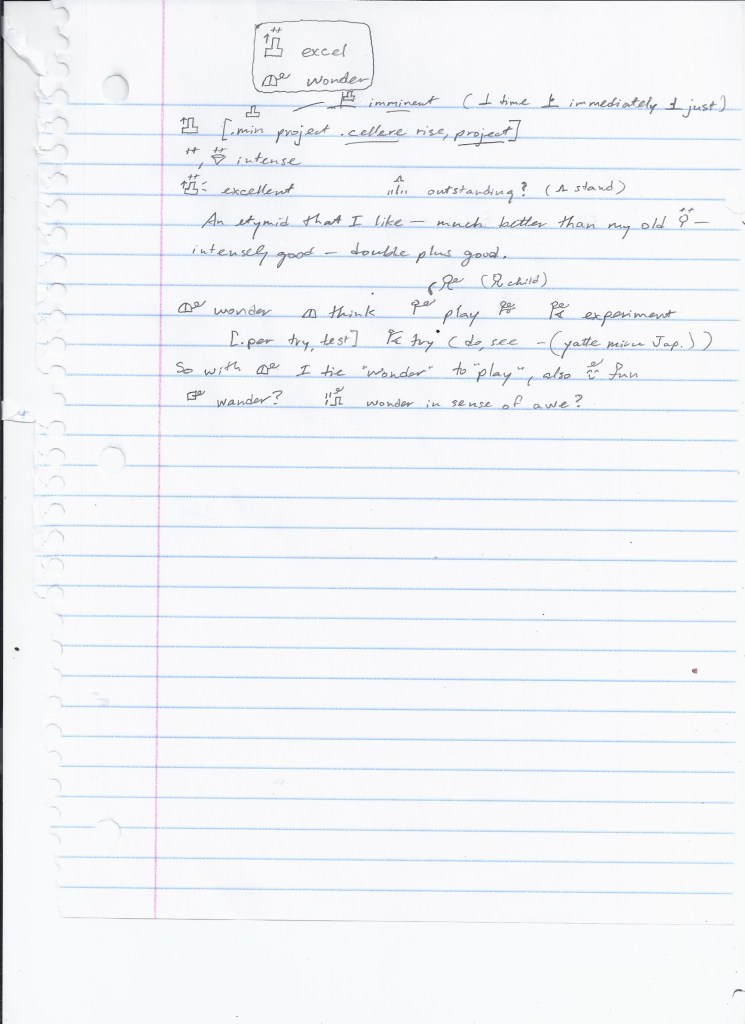 excel
wonder
imminent ( ⊥ time immediately just)
[.min project .cellere rise, project]
++, intense
excellent outstanding? ( stand)
An etymid that I like — much better than my old —
intensely good — double plus good.
( child)
wonder think play experiment
[.per try, test] try (do, see - (yatte miru Jap.))
So with I tie "wonder" to "play", also fun
wander? wonder in sense of awe?